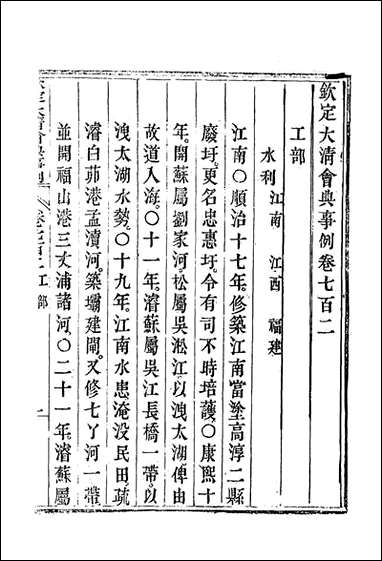 欽定大清會典事例卷七百二
工部
水利 江南 江西 福建
江南〇順治十七年。修築江南當塗高淳二縣
廢圩。更名忠惠圩。令有司不時培護。〇康熙十
年。開蘇屬劉家河。松屬吳淞江。以洩太湖。俾由
故道入海。〇十一年。濬蘇屬吳江長橋一帶。以
洩太湖水勢。〇十九年。江南水患。淹沒民田。疏
濬白茆港孟瀆河。築壩建閘。又修七丫河一帶
並開福山港三丈浦諸河。〇二十一年。濬蘇屬